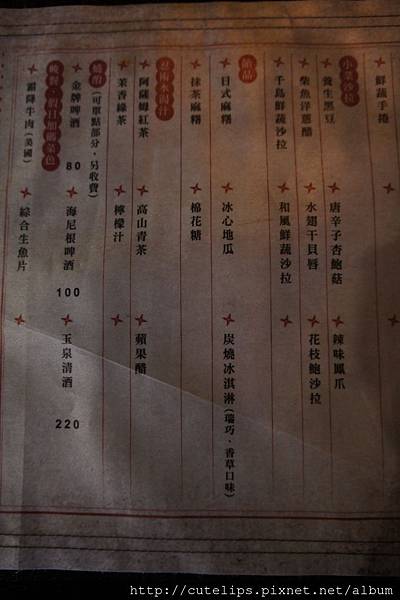 鮮蔬手捲
小菜沙拉
養生黑豆
唐辛子杏鮑菇
辣味鳳爪
柴魚洋蔥醋
水翅干貝唇
花枝鮑沙拉
千島鮮蔬沙拉
和風鮮蔬沙拉
甜品
日式麻糬
冰心地瓜
炭燒冰淇淋(瑞巧、香草口味)
抹茶麻糬
棉花糖
阿薩姆紅茶
高山青茶
蘋果醋
茉香綠茶
檸檬汁
(可單點部分，另收費)
金牌啤酒 80
海尼根啤酒 100
玉泉清酒 220
晚餐、假日加價菜色
霜降牛肉(美國)
綜合生魚片
http://cutelips.pixnet.net/album